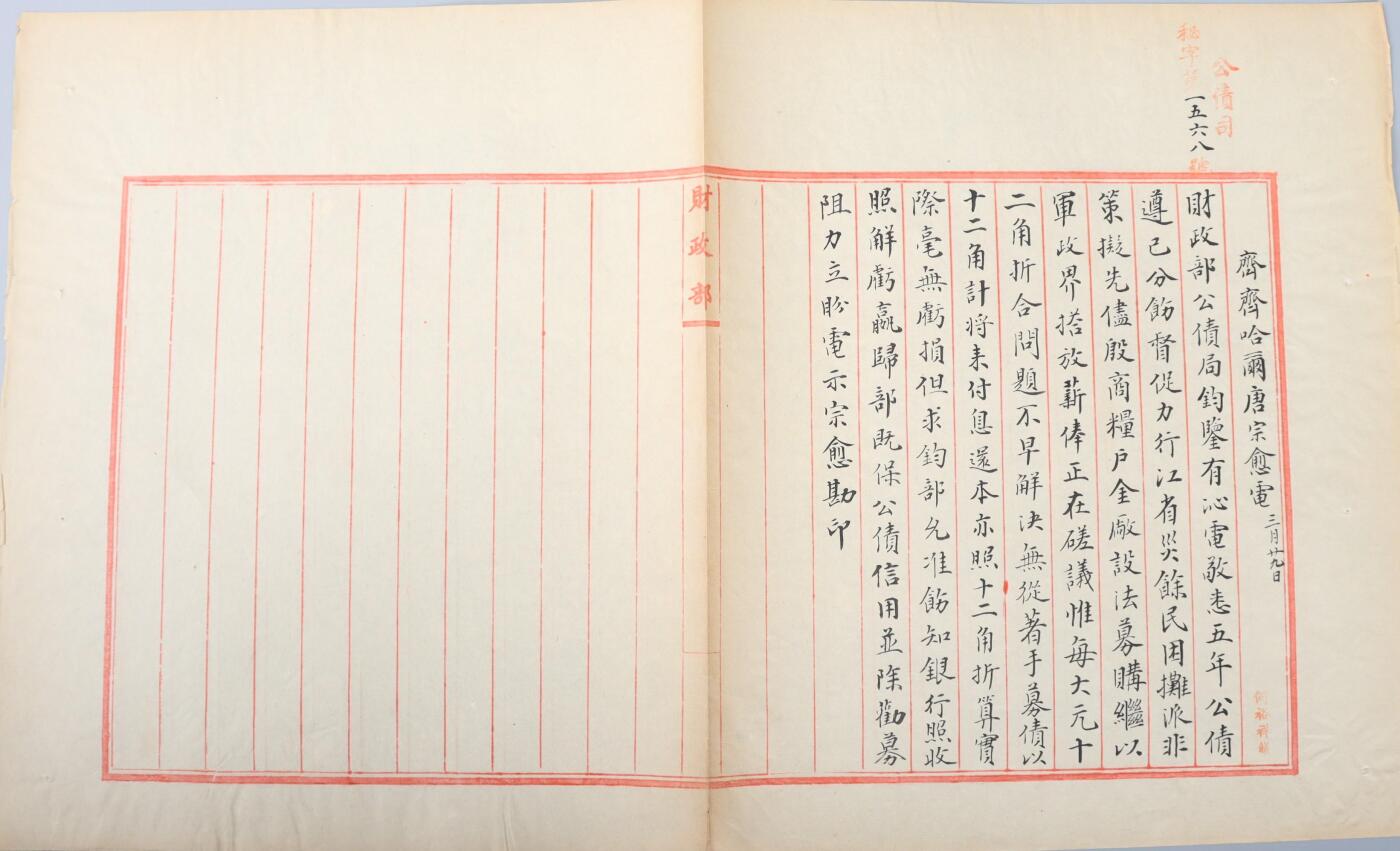 公債司
秘字第一五六八號
齊齊哈爾唐宗愈電三月廿九日
財政部公債局鈞鑒有沁電敬悉五年公債
遵已分飭督促力行江省災餘民困攤派非
策擬先儘殷商糧戶金廠設法募購繼以
軍政界搭放薪俸正在磋議惟每大元十
二角折合問題不早解決無從著手募債以
十二角計將来付息還本亦照十二角折算實
際毫無虧損但求鈞部允准飭知銀行照收
照解虧贏歸部既保公債信用並除勸募
阻力立盼電示宗愈勘印
財政部